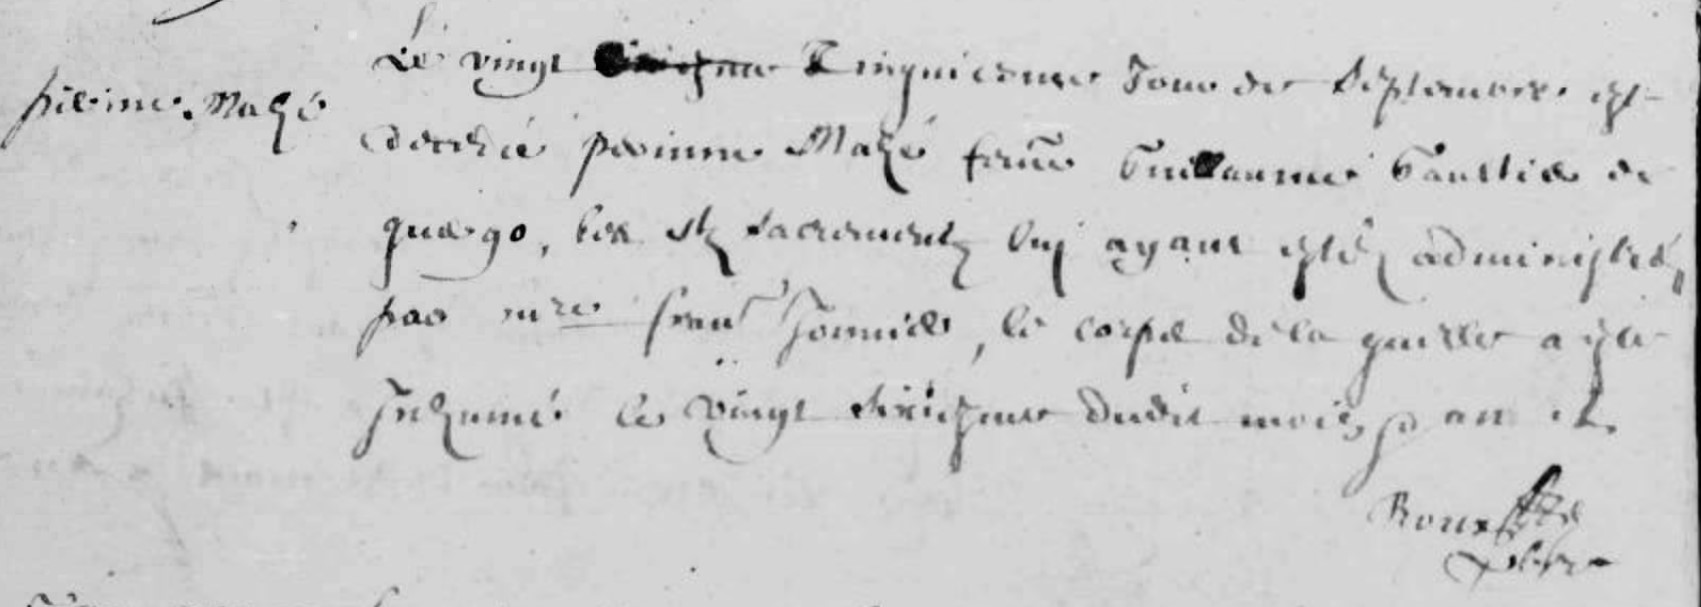 perinne Mahé
Le vingt cinquiesme Jour de Septembre est
decedée perinne Mahé femē Guillaume Gaultier de
quergo, les sts sacrements luy ayant estés administrés
par mre Jounier, le corps de la quelle a esté
Inhumé le vingt sixiesme dudit mois et an
pbre